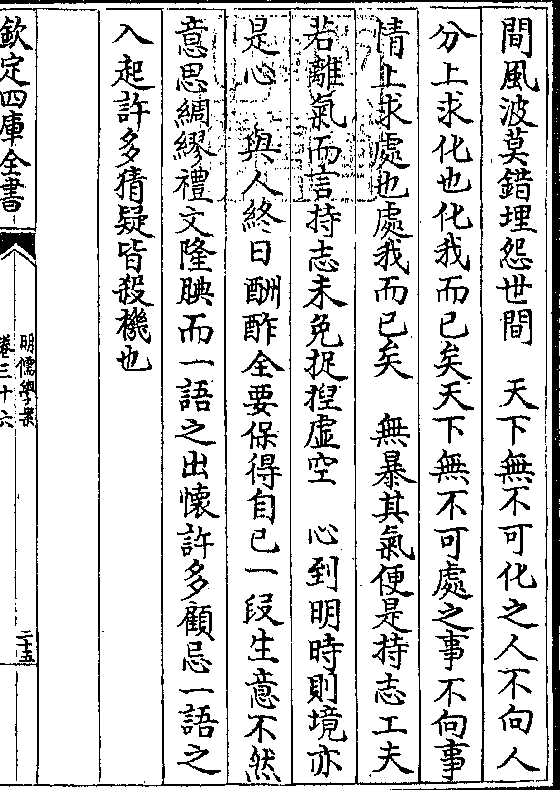 間風波莫錯埋怨世間　天下無不可化之人不向人
分上求化也化我而已矣天下無不可處之事不向事
情上求處也處我而已矣　無暴其氣便是持志工夫
若離氣而言持志未免捉揑虛空　心到明時則境亦
是心　與人終日酬酢全要保得自己一段生意不然
意思綢繆禮文隆腆而一語之出懷許多顧忌一語之
入起許多猜疑皆殺機也
欽定四庫全書
明儒學案
卷三十六
二十五